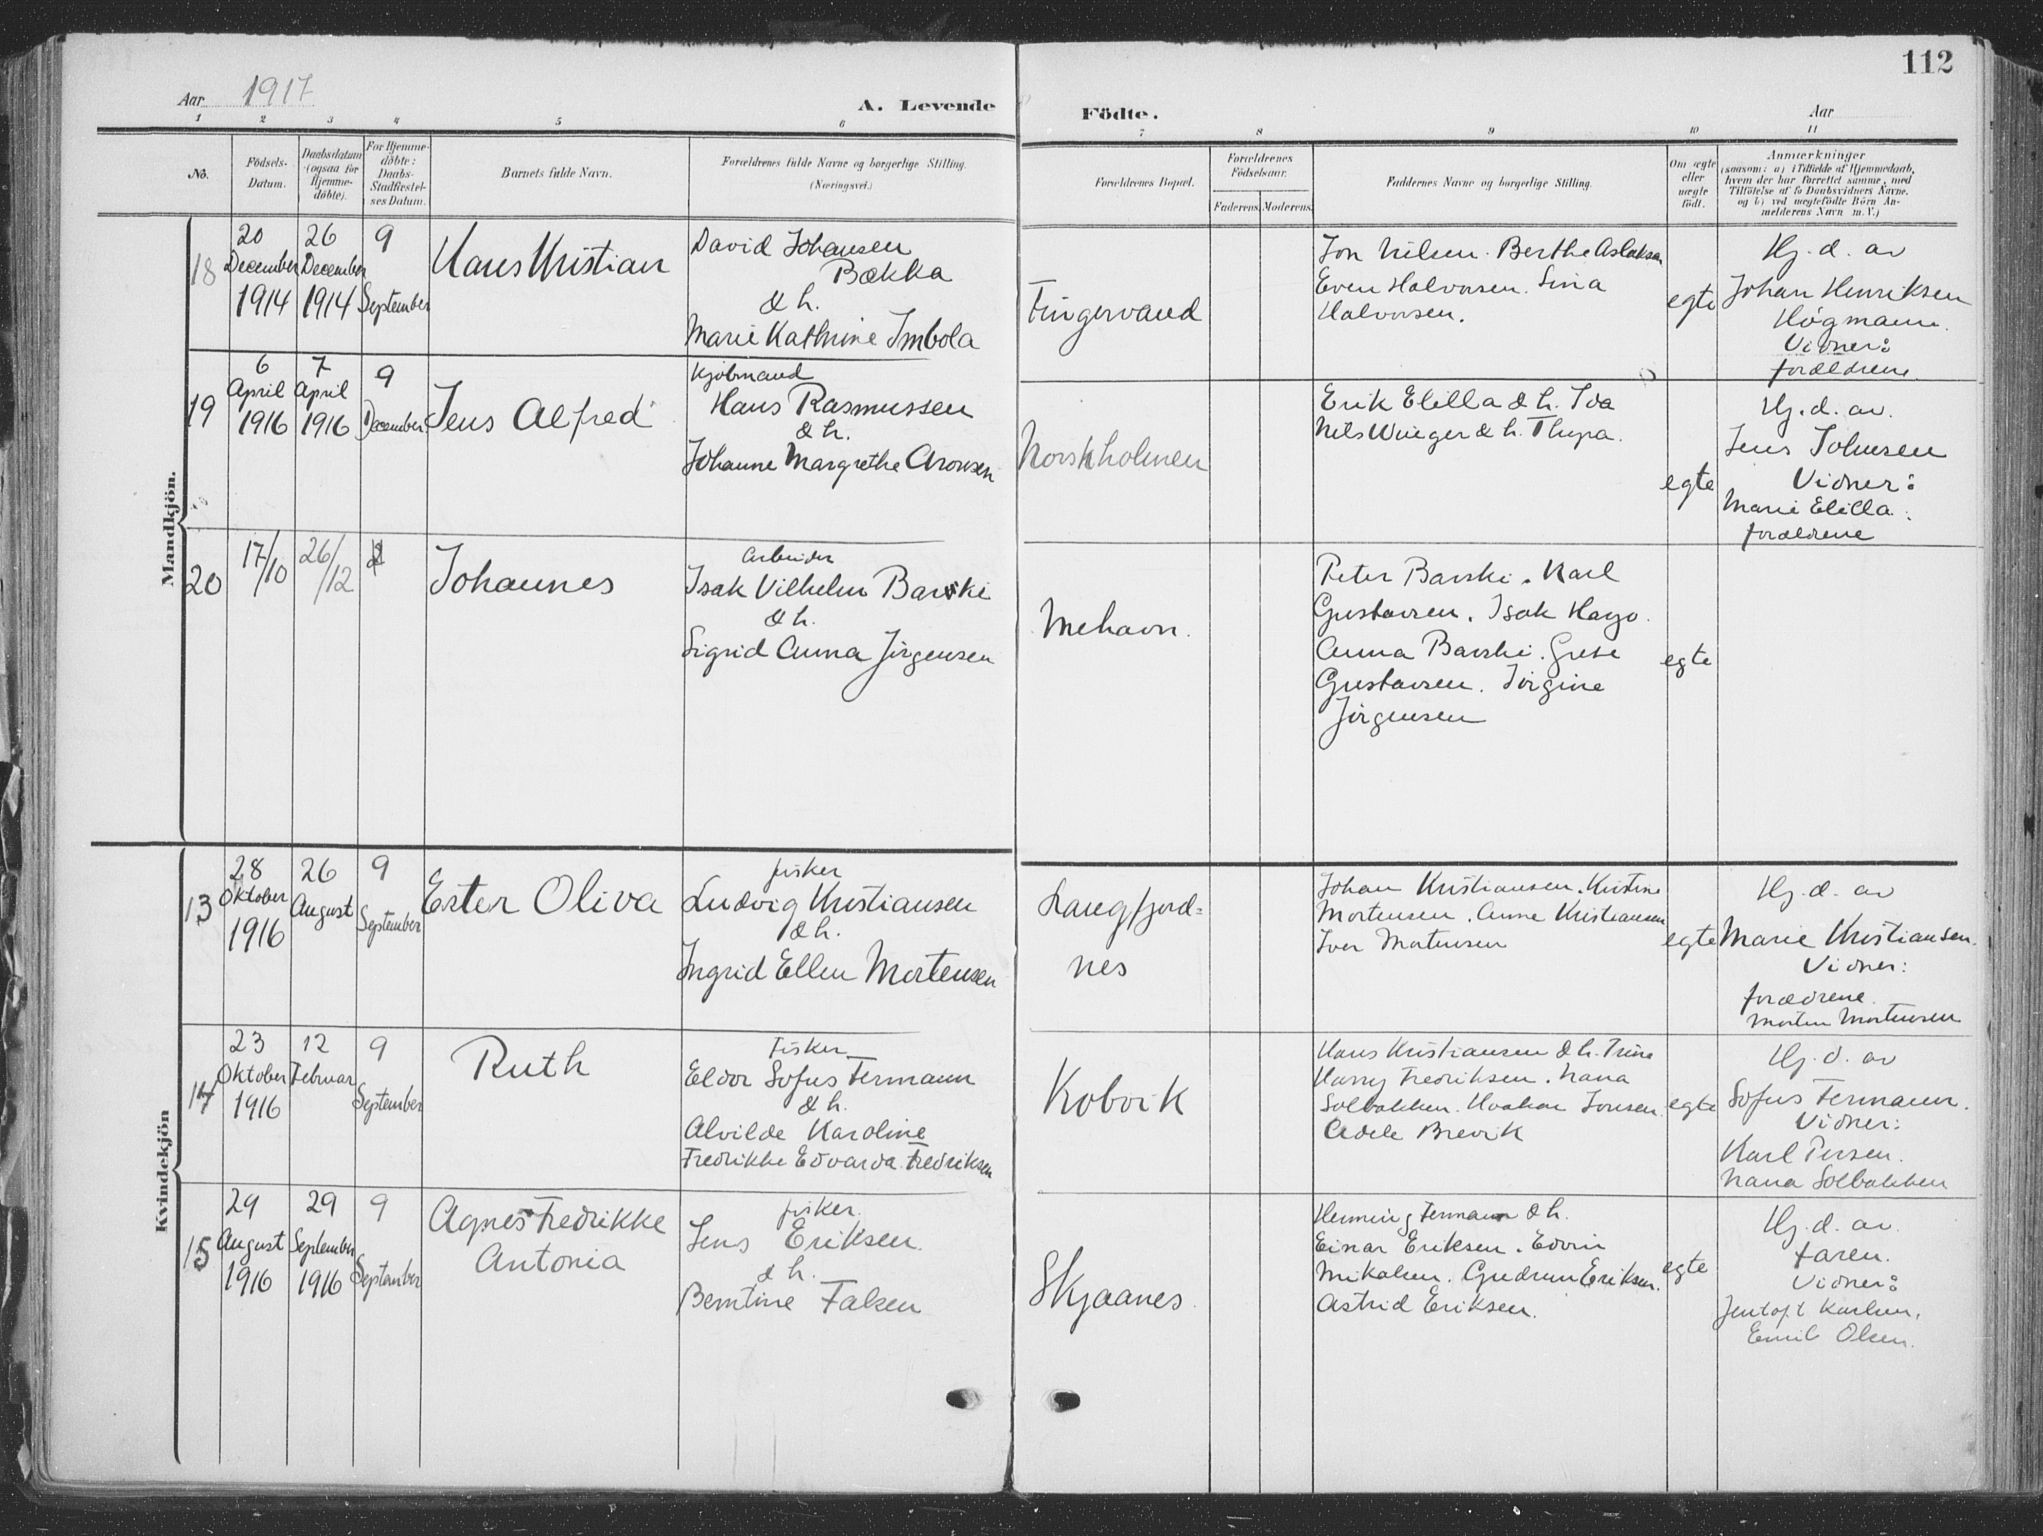 112
Aar 1917
A. Levende
Födte.
Aar
1 2 3 4 5 6 7 8 9 10 11
No.
Födsels-
Datum.
Daabsdatum
(ogsaa for
Hjemme-
döbte).
For Hjemme-
döbte:
Daabs-
Stadfæstel-
ses Datum.
Barnets fulde Navn.
Forældrenes fulde Navne og borgerlige Stilling.
(Næringsvei.)
Forældrenes Bopæl.
Forældrenes
Födselsaar.
Faderens.
Moderens.
Faddernes Navne og borgerlige Stilling.
Om ægte
eller
uægte
födt.
Anmærkninger
(saasom: a) i Tilfælde af Hjemmedaab,
hvem der har forrettet samme, med
Tilföielse af to Daabsvidners Navne.
og b) ved uægtefödte Börn An-
melderens Navn m. V.)
Mandkjön.
18
20
December
1914
26
December
1914
9
September
Hans Kristian
David Johansen
Bækka
& h.
Marie Kathrine Imbola
Fingervand
Jon Nilsen. Berthe Aslaksen
Even Halvorsen. Sina
Halvorsen.
egte
Hj. d. av
Johan Henriksen
Högmann.
Vidner:
forældrene.
19
6
April
1916
7
April
1916
9
December
Jens Alfred
Kjøbmand
Hans Rasmussen
& h.
Johanne Margrethe Aronsen
Norskholmen
Erik Elilla & h. Ida
Nils Winger & h. Thyra.
egte
Hj. d. av.
Jens Johnsen
Vidner:
Marie Elilla.
forældrene
20
17/10
26/12
Johannes
Arbeider
Isak Vilhelm Barski
& h.
Sigrid Anna Jørgensen
Mehavn.
Peter Barski. Karl
Gustavsen. Isak Hago.
Anna Barski. Grete
Gustavsen. Jørgine
Jørgensen
egte
Kvindekjön
13
28
Oktober
1916
26
August
9
September
Ester Oliva
fisker
Ludvig Kristiansen
& h.
Ingrid Ellen Mortensen
Langfjord=
nes
Johan Kristiansen. Kristine
Mortensen. Anne Kristiansen
Iver Mortensen
egte
Hj. d. av
Marie Kristiansen.
Vidner:
forældrene.
Morten Mortensen
14
23
Oktober
1916
12
Februar
9
September
Ruth
Fisker
Eldor Sofus Fermann
& h.
Alvilde Karoline
Fredrikke Edvarda Fredriksen
Kobvik
Hans Kristiansen & h. Trine
Harry Fredriksen. Nana
Solbakken. Haakon Jonsen.
Adele Brevik
egte
Hj. d. av
Sofus Fermann.
Vidner:
Karl Persen.
Nana Solbakken
15
29
August
1916
29
September
1916
9
September
Agnes Fredrikke
Antonia
fisker.
Jens Eriksen.
& h.
Berntine Falsen
Skjaanes
Henning Fermann & h.
Einar Eriksen. Edvin
Mikalsen. Gudrun Eriksen.
Astrid Eriksen.
egte
Hj. d. av.
faren.
Vidner:
Jentoft Karlsen.
Emil Olsen.